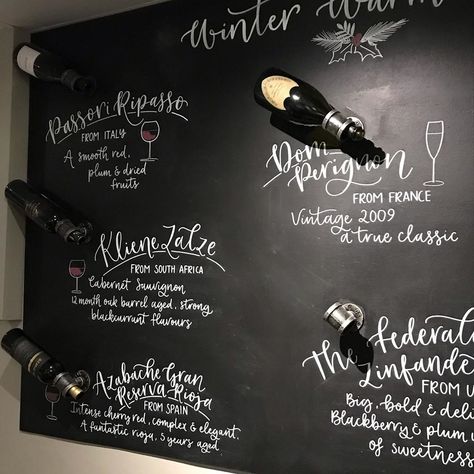 Winter Warm
Passori Ripasso
FROM ITALY
A smooth red,
plum & dried
fruits
Dom
Perignon
FROM FRANCE
Vintage 2009
a true classic
Kliene Zalze
FROM SOUTH AFRICA
Cabernet Sauvignon
12 month oak barrel aged, strong
blackcurrant flavours
Azabache Gran
Reserva Rioja
FROM SPAIN
Intense cherry red, complex & elegant.
A fantastic rioja, 5 years aged.
The Federal
Zinfande
FROM U
Big, bold & deli
Blackberry & plum
of sweetness